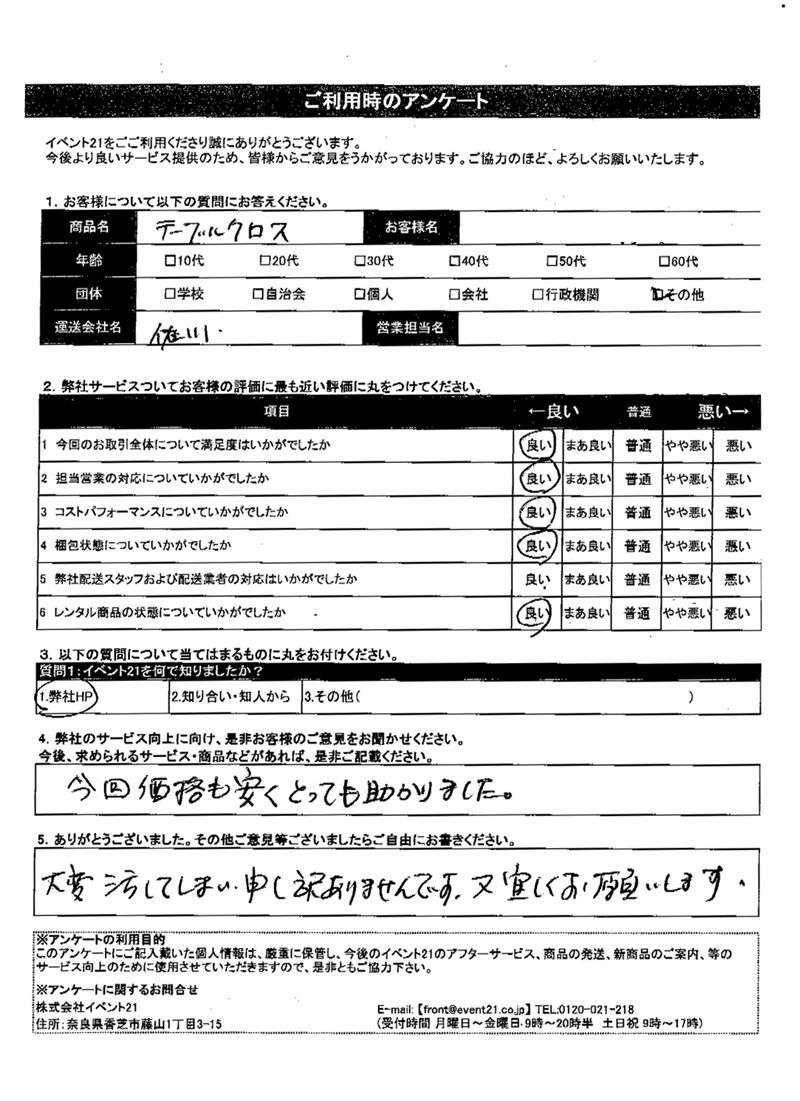 ご利用時のアンケート
イベント21をご利用くださり誠にありがとうございます。
今後より良いサービス提供のため、皆様からご意見をうかがっております。ご協力のほど、よろしくお願いいたします。
1. お客様について以下の質問にお答えください。
商品名 テーブルクロス お客様名
年齢 □10代 □20代 □30代 □40代 □50代 □60代
団体 □学校 □自治会 □個人 □会社 □行政機関 □その他
運送会社名 佐川. 営業担当名
2. 弊社サービスついてお客様の評価に最も近い評価に丸をつけてください。
項目 ←良い 普通 悪い→
1 今回のお取引全体について満足度はいかがでしたか 良い まあ良い 普通 やや悪い 悪い
2 担当営業の対応についていかがでしたか 良い まあ良い 普通 やや悪い 悪い
3 コストパフォーマンスについていかがでしたか 良い まあ良い 普通 やや悪い 悪い
4 梱包状態についていかがでしたか 良い まあ良い 普通 やや悪い 悪い
5 弊社配送スタッフおよび配送業者の対応はいかがでしたか 良い まあ良い 普通 やや悪い 悪い
6 レンタル商品の状態についていかがでしたか 良い まあ良い 普通 やや悪い 悪い
3. 以下の質問について当てはまるものに丸をお付けください。
質問1:イベント21を何で知りましたか？
1.弊社HP 2.知り合い・知人から 3.その他( )
4. 弊社のサービス向上に向け、是非お客様のご意見をお聞かせください。
今後、求められるサービス・商品などがあれば、是非ご記載ください。
今回価格も安くとっても助かりました。
5. ありがとうございました。その他ご意見等ございましたらご自由にお書きください。
大変汚してしまい、申し訳ありませんです。又宜しくお願いします.
※アンケートの利用目的
このアンケートにご記入戴いた個人情報は、厳重に保管し、今後のイベント21のアフターサービス、商品の発送、新商品のご案内、等の
サービス向上のために使用させていただきますので、是非ともご協力下さい。
※アンケートに関するお問合せ
株式会社イベント21 E-mail:【front@event21.co.jp】 TEL:0120-021-218
住所:奈良県香芝市藤山1丁目3-15 (受付時間 月曜日～金曜日・9時～20時半 土日祝 9時～17時)